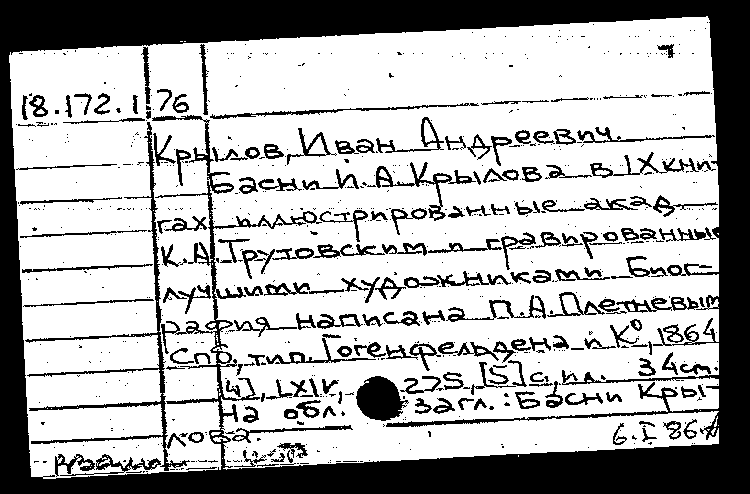 18.172.1.76
Крылов, Иван Андреевич.
Басни И.А.Крылова в IX кни-
гах иллюстрированные акад.
К.А.Трутовским и гравированные
лучшими художниками Биог-
рафия написана П.А.Плетневым
Спб., тип. Гогенфельдена и К⁰, 1864
[4], LXIV, 275, [5] с., ил. 34см.
На обл. загл.: Басни Кры-
лова.
6.I 86.